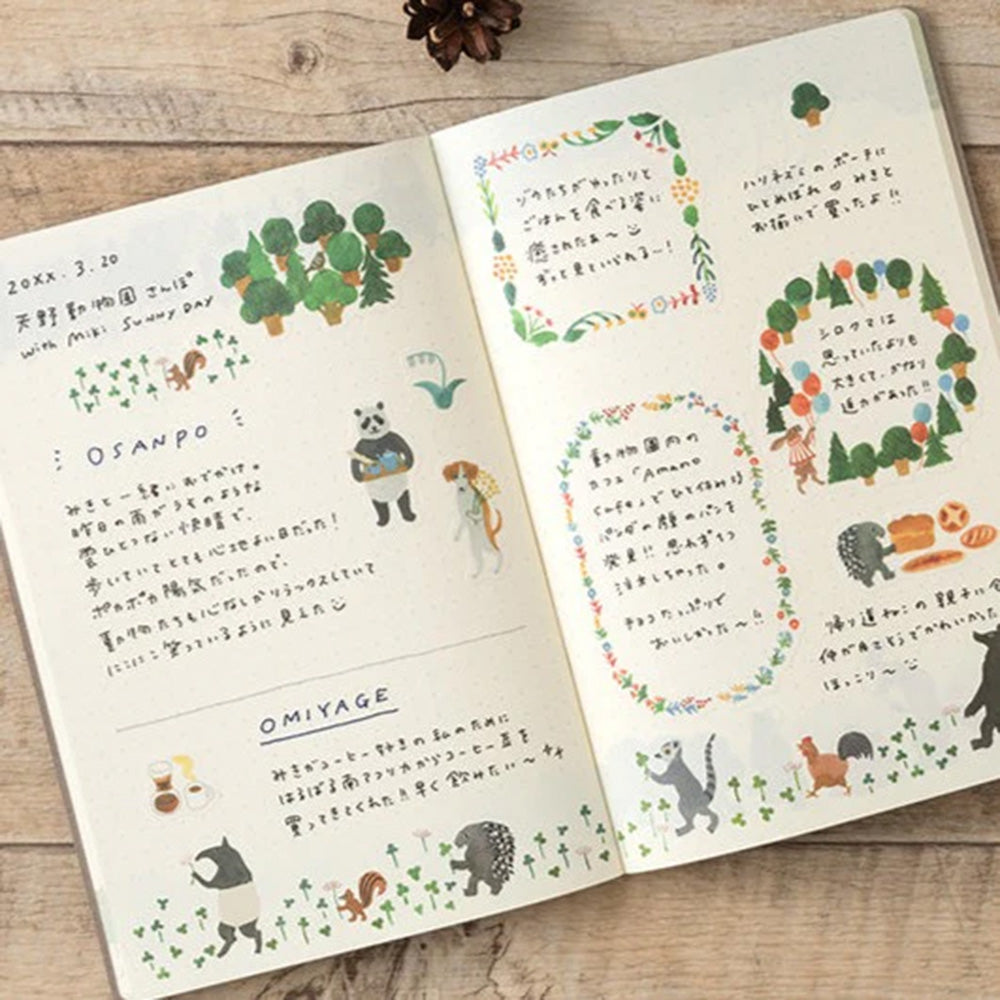 20XX.3.20
天野動物園さんぽ
with Miki SUNNY DAY
OSANPO
みきと一緒におでかけ。
昨日の雨がうそのような
雲ひとつない快晴で、
歩いていてとても心地よい日だった!
ポカポカ陽気だったので、
動物たちも心なしかリラックスしていて
にこにこ笑っているように見えた
OMIYAGE
みきがコーヒー好きの私のために
はるばる南アフリカからコーヒー豆を
買ってきてくれた!!早く飲みたい〜
ゾウたちがゆったりと
ごはんを食べる姿に
癒されたぁ〜
ずっと見ていられる〜!
動物園内の
カフェ「Amano
cafe」でひと休み
パンダの顔のパンを
発見!!思わず1つ
注文しちゃった。
チョコたっぷりで
おいしかった〜!!
ハリネズミのポーチに
ひとめぼれ♡みきと
お揃いで買ったよ!!
シロクマは
思っていたよりも
大きくて、かなり
迫力があった!!
帰り道ねこの親子に
仲が良さそうでかわいかった
ほっこり〜